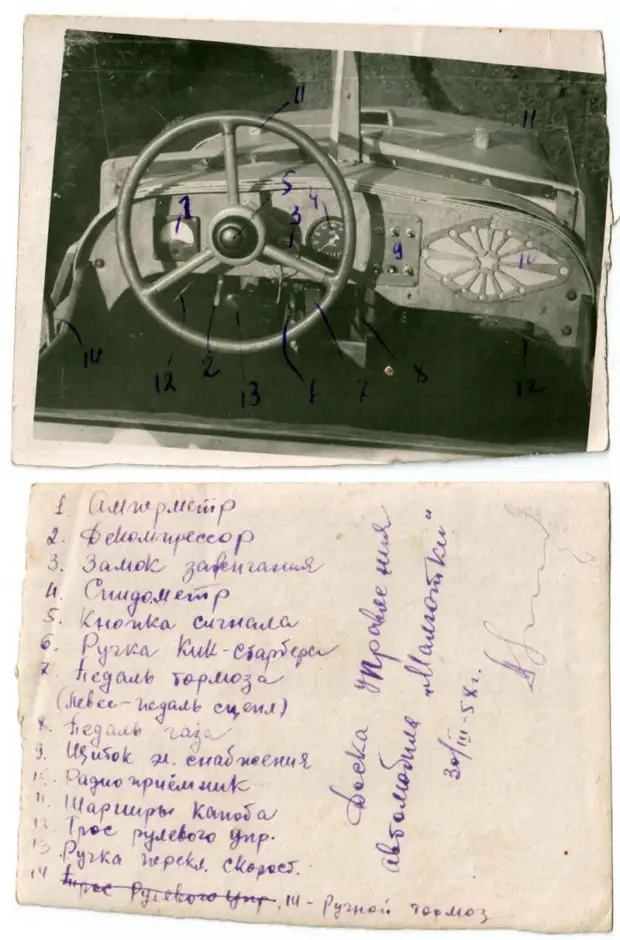 11
11
5
4
1
3
9
10
14
12
2
13
6
7
8
12
1. Амперметр
2. Декомпрессор
3. Замок зажигания
4. Спидометр
5. Кнопка сигнала
6. Ручка Кик-стартера
7. Педаль тормоза
(левее-педаль сцепл)
8. Педаль газа
9. Щиток эл. снабжения
10. Радиоприёмник
11. Шарниры капота
12. Трос рулевого упр.
13. Ручка перекл. скорост.
14 Трос Рулевого Упр. 14 - Ручной тормоз
Доска управления
автомобиля "Малютки"
30/III-58г.